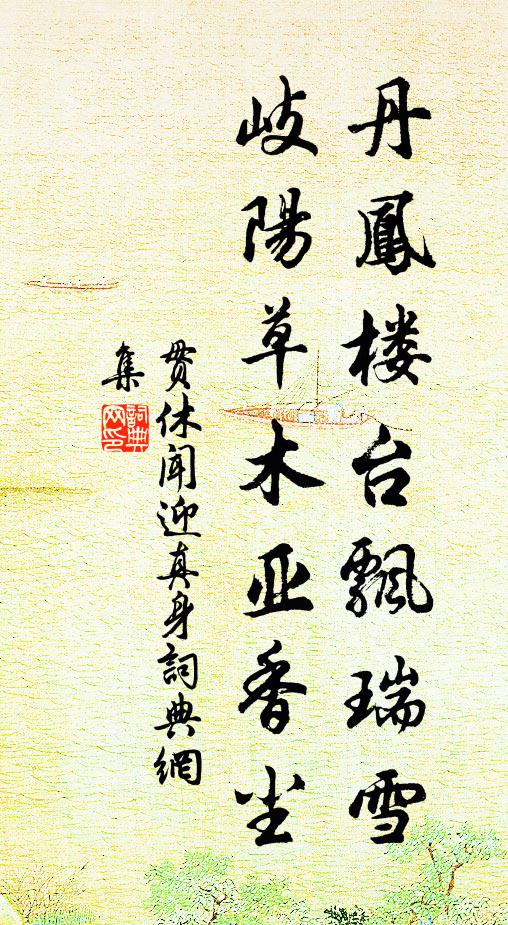 丹鳳楼台飄瑞雪
岐陽草木亚香尘
贯休闻迎真身詞典網
集
詞典
网印